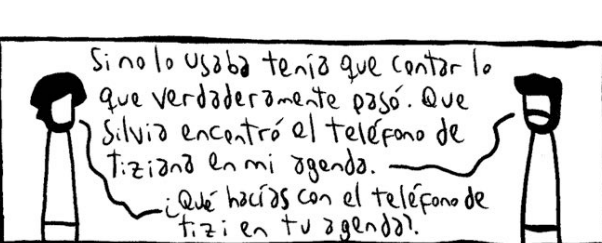 Si no lo usaba tenía que contar lo
que verdaderamente pasó. Que
Silvia encontró el teléfono de
Tiziana en mi agenda.
¿Qué hacías con el teléfono de
Tizi en tu agenda?.